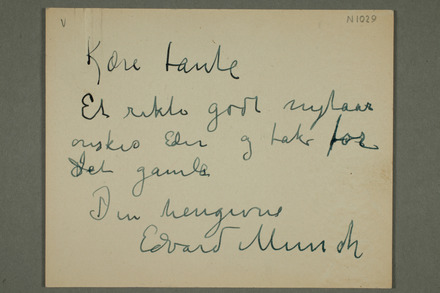 V
N1029
Kjære tante
Et rikti godt nytaar
ønskes Eder og tak for
det gamle
Din hengivne
Edvard Munch